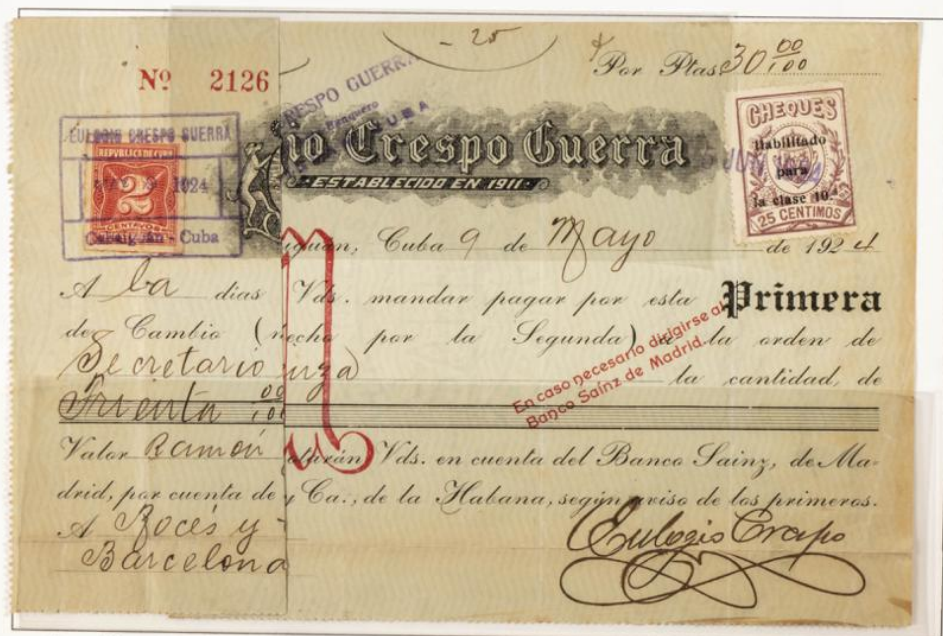 - 25
Por Ptas 30 00/100
Nº 2126
CRESPO GUERRA
Banquero
CUBA
EULOGIO CRESPO GUERRA
REPUBLICA DE CUBA
1924
2
CENTAVOS
Cuba
io Crespo Guerra
ESTABLECIDO EN 1911
CHEQUES
Habilitado
para
la clase 10.ª
25 CENTIMOS
JUN
iguán, Cuba 9 de Mayo de 1924
A la dias Vds. mandar pagar por esta Primera
de Cambio (hecho por la Segunda) a la orden de
Secretario la cantidad, de
En caso necesario dirigirse al
Banco Saínz de Madrid.
Trienta 00/100
Valor Ramón Vds. en cuenta del Banco Sainz, de Ma-
drid, por cuenta de y Ca., de la Habana, según aviso de los primeros.
A Roces y
Barcelona
Eulogio Crespo